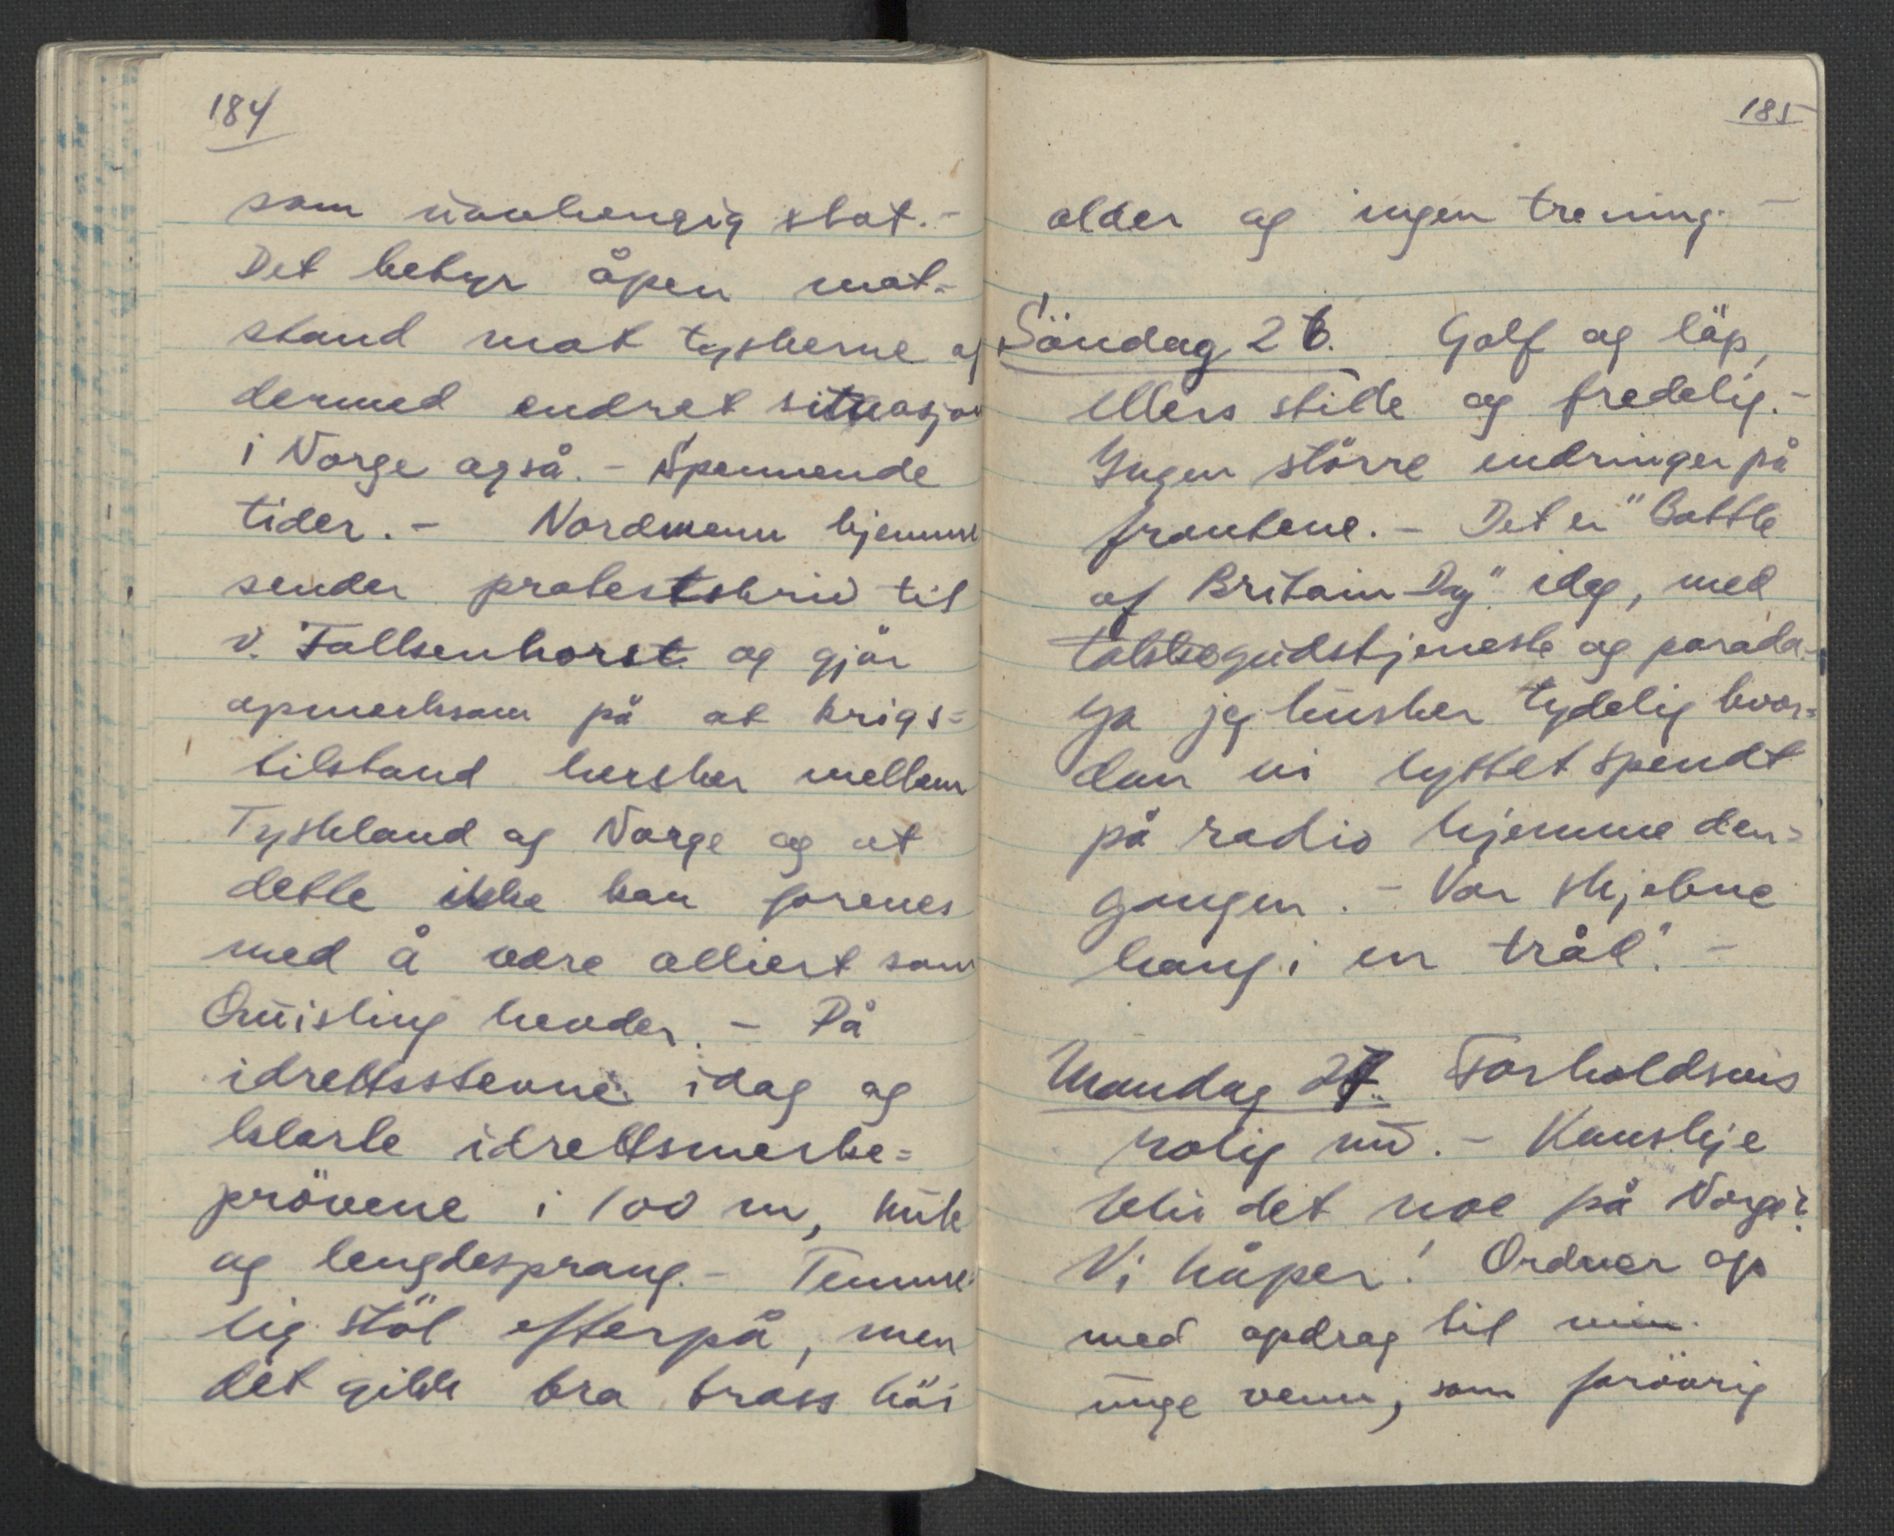 184
som uavhengig stat. -
Det betyr åpen mot-
stand mot tyskerne og
dermed endret situasjon
i Norge også. - Spennende
tider. - Nordmenn hjemme
sender protestskriv til
v. Falkenhorst og gjör
opmerksom på at krigs=
tilstand hersker mellem
Tyskland og Norge og at
dette ikke kan forenes
med å være alliert som
Quisling hevder. - På
idrettsstevne idag og
klarte idrettsmerke=
prövene i 100 m, kule
og lengdesprang. - Temme-
lig stöl efterpå, men
det gikk bra tross höi
185
alder og ingen trening. -
Söndag 26. Golf og löp,
ellers stille og fredelig. -
Ingen större endringer på
frontene. - Det er "Battle
of Britain Day" idag, med
takkegudstjeneste og parada.-
Ja jeg husker tydelig hvor=
dan vi lyttet spendt
på radio hjemme den=
gangen. - Vor skjebne
hang i en tråd". -
Mandag 27. Forholdsvis
rolig nu. - Kanskje
blir det noe på Norge?
Vi håper! Ordner op
med opdrag til min
unge venn, som forövrig